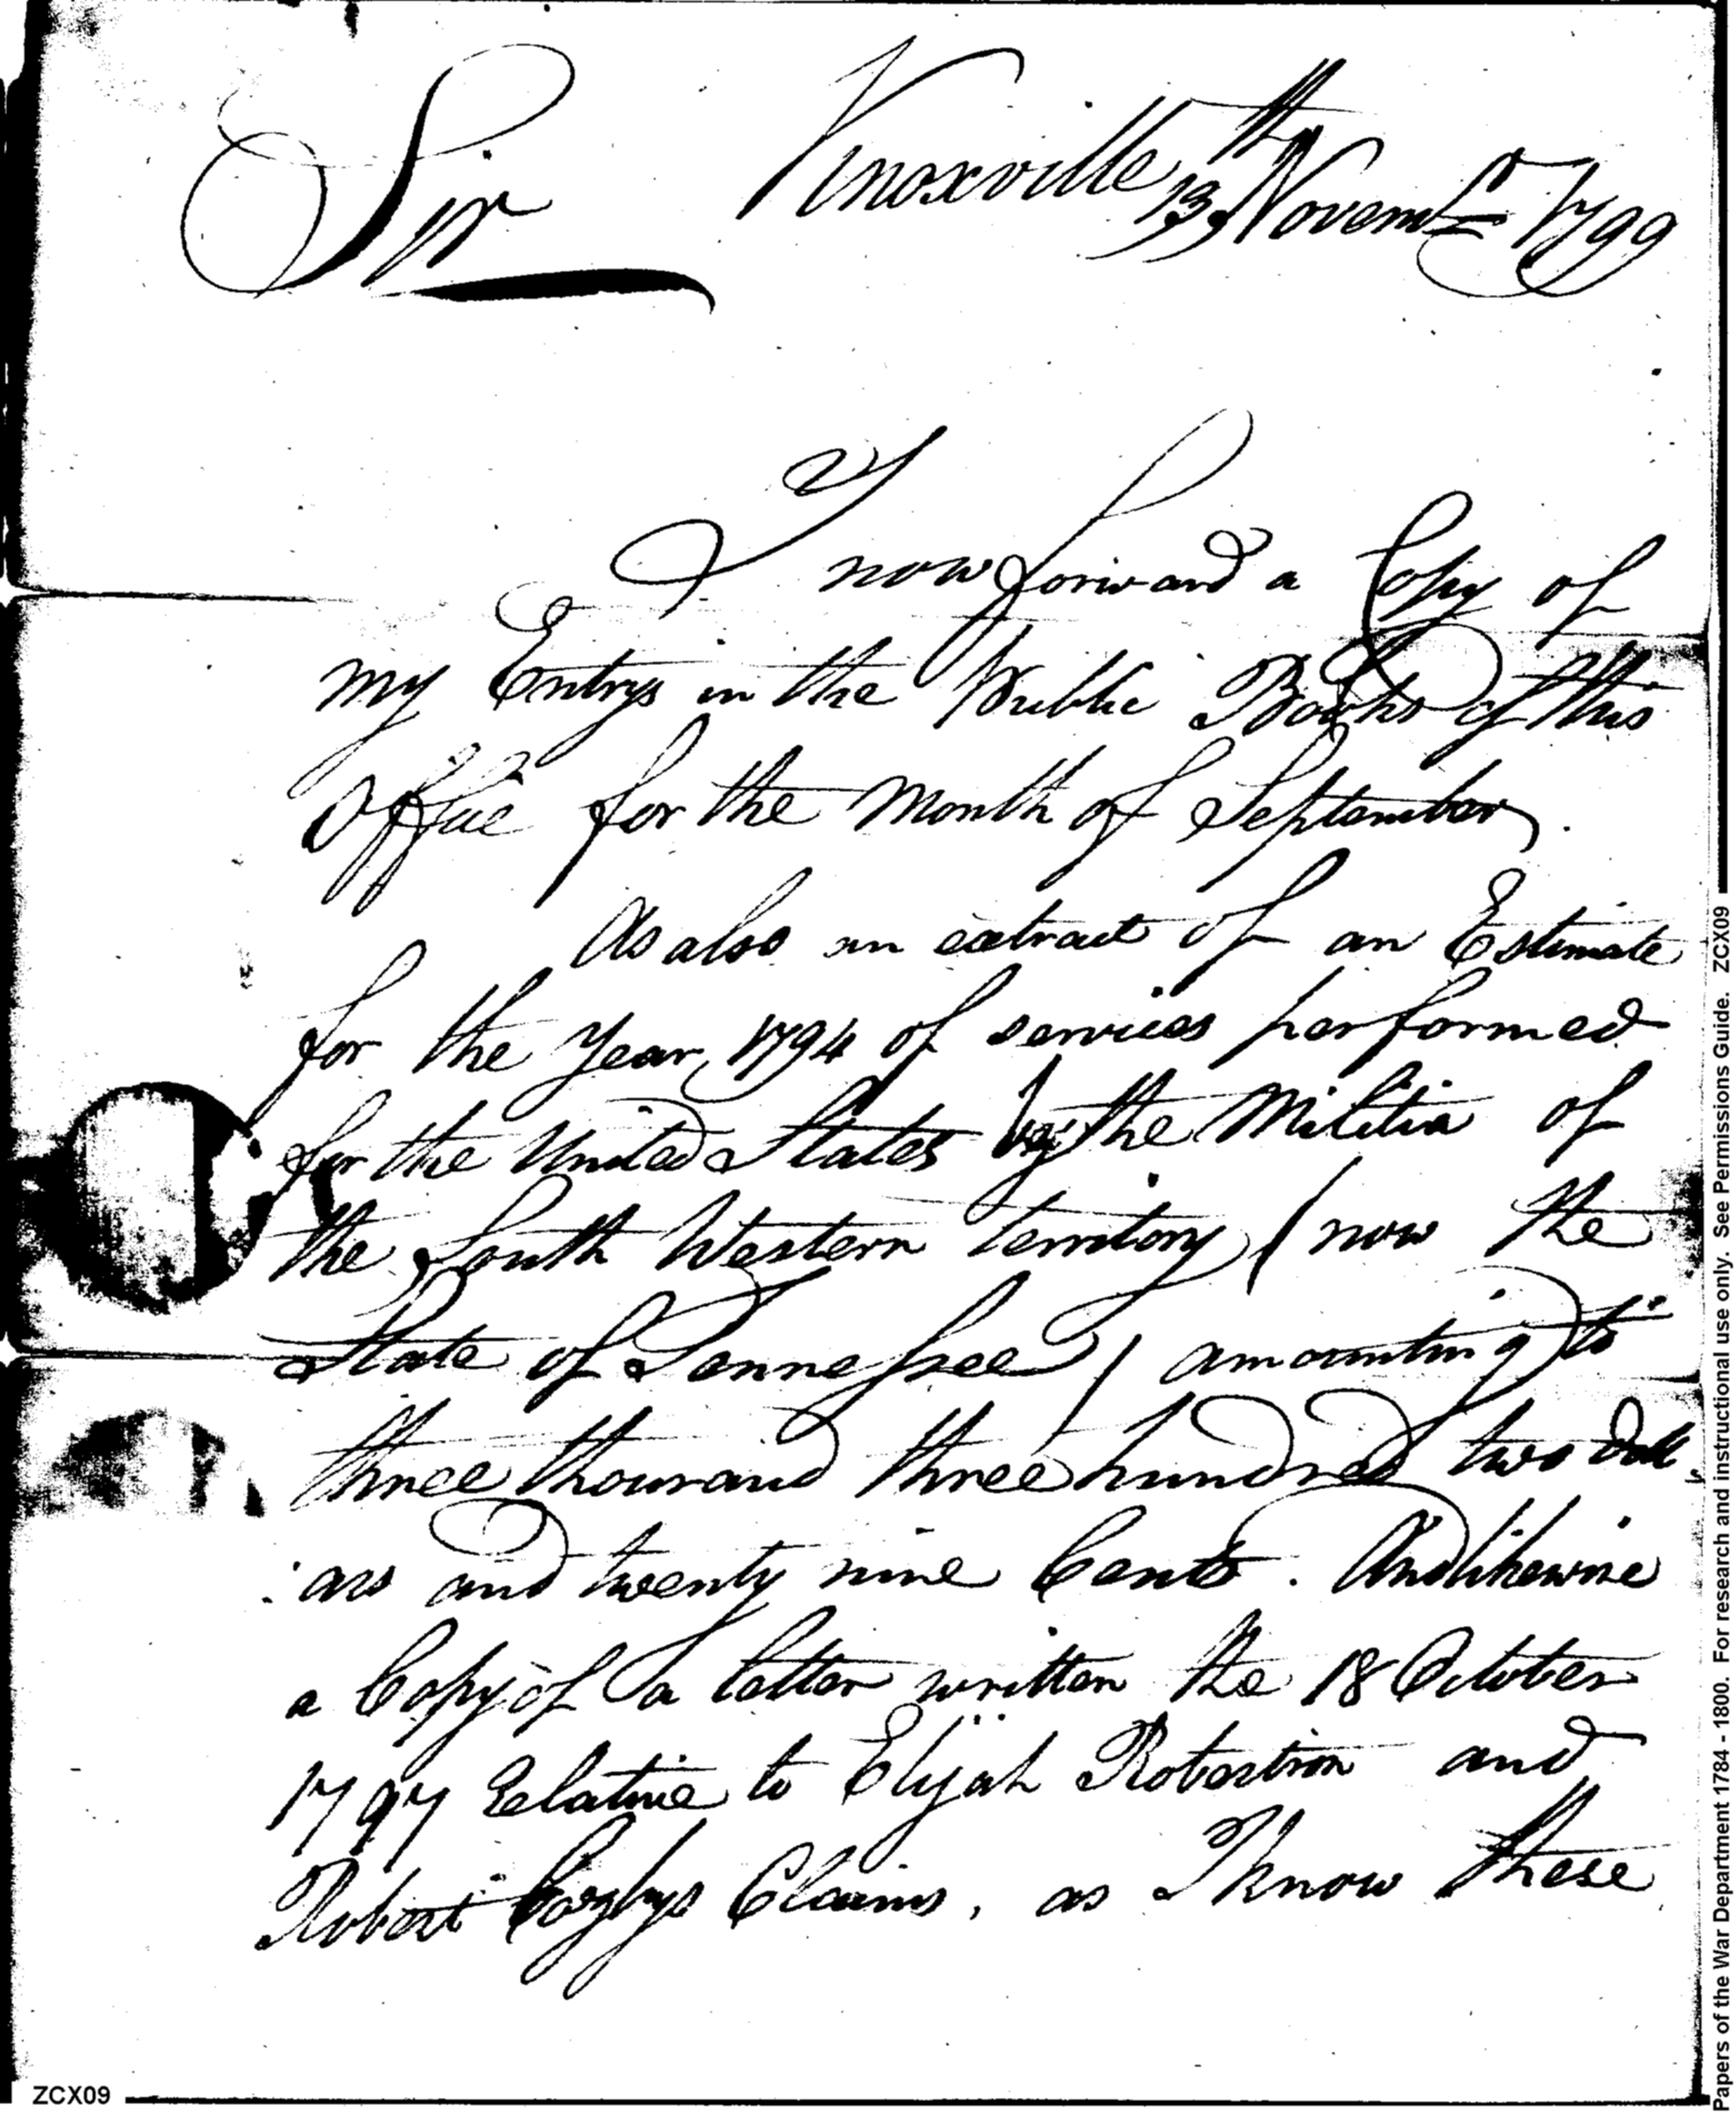 Sir Knoxville 13th Novembr 1799
I now forward a Copy of
my Entrys in the Public Books of this
Office for the Month of September.
As also an extract of an Estimate
for the Year 1794 of services performed
for the United States by the Militia of
the South Western territory (now the
State of Tennessee) amounting to
three thousand three hundred two doll
:ars and twenty nine Cents. And likewise
a Copy of a letter written the 18 October
1797 Relative to Elijah Robertson and
Robert Cozbys Claims, as I know these
ZCX09
Papers of the War Department 1784 - 1800. For research and instructional use only. See Permissions Guide. ZCX09